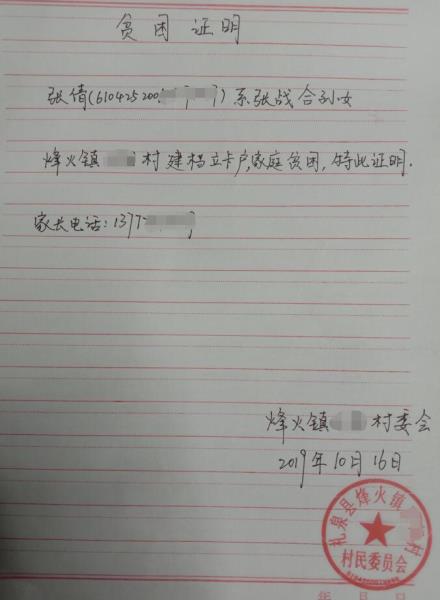 贫困证明
张倩(610425200) 系张战合孙女
烽火镇 村建档立卡户,家庭贫困,特此证明.
家长电话:1377
烽火镇 村委会
2019年10月16日
礼泉县烽火镇 村
村民委员会
年 月 日